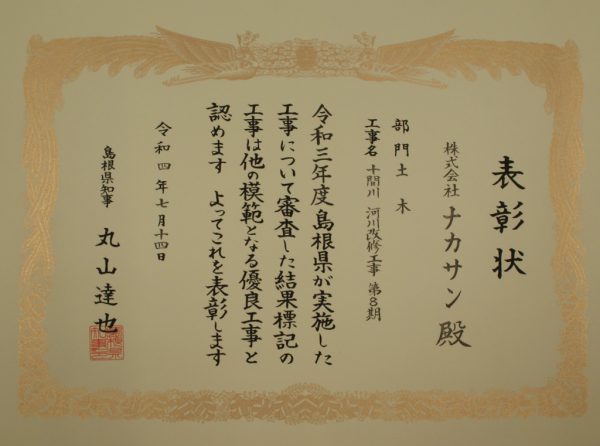 表彰状
株式会社 ナカサン 殿
部門 土木
工事名 十間川 河川改修工事 第8期
令和三年度島根県が実施した
工事について審査した結果標記の
工事は他の模範となる優良工事と
認めます よってこれを表彰します
令和四年七月十四日
島根県知事 丸山達也